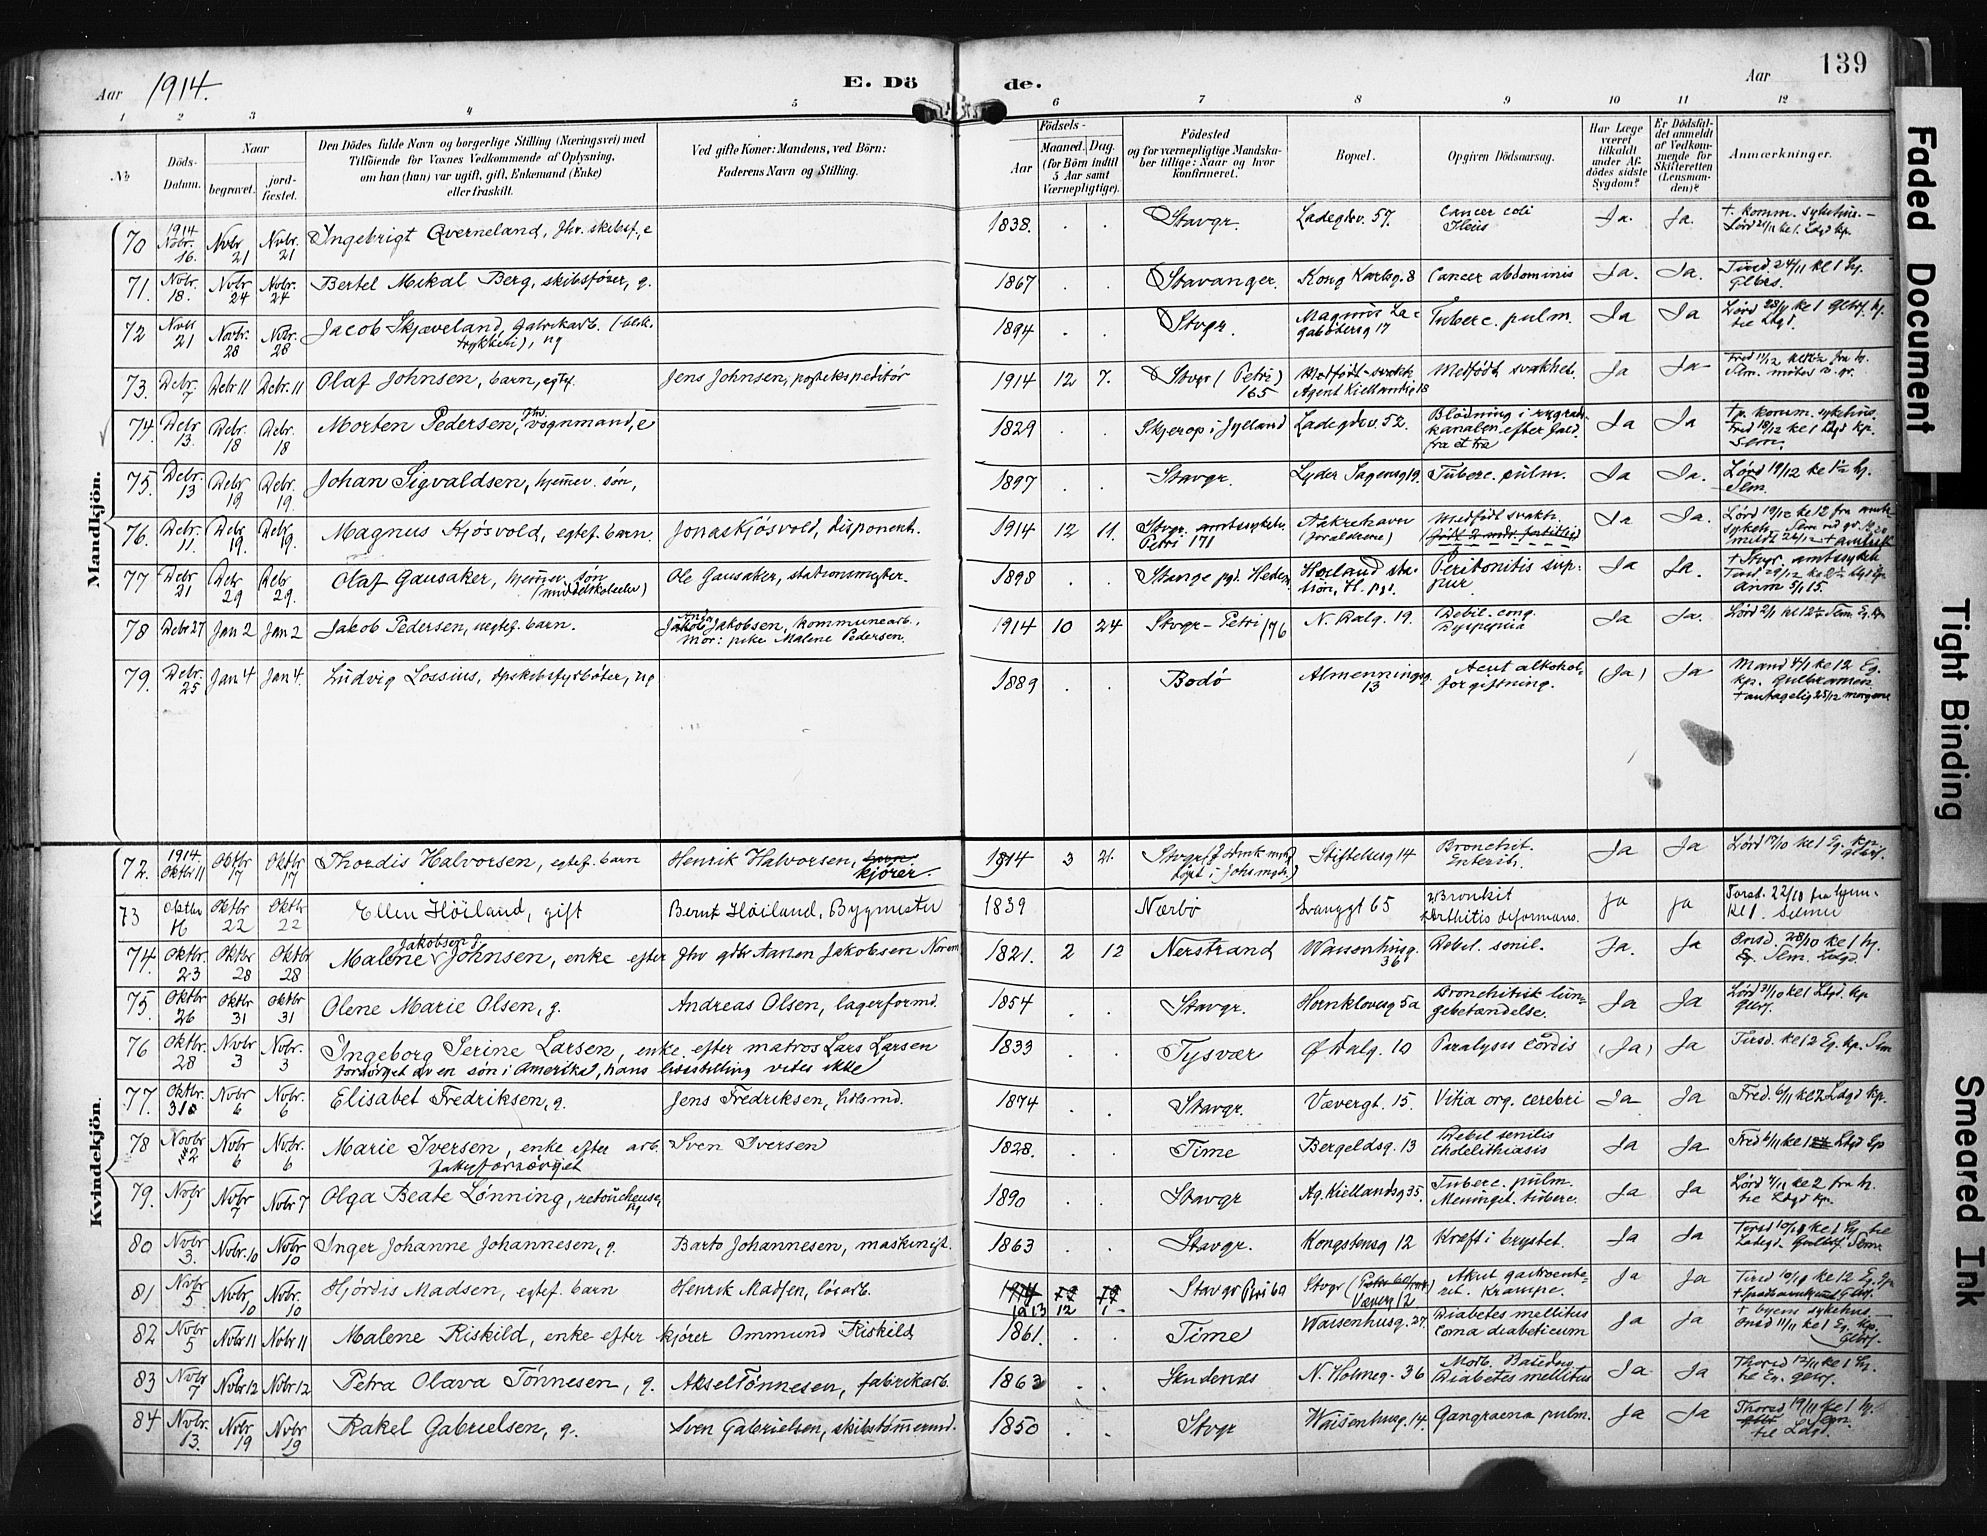 Aar 1914. E. Dö de. Aar 139
1 2 3 4 5 6 7 8 9 10 11 12
No.
Döds-Datum.
Naar
begravet.
jord-fæstet.
Den Dödes fulde Navn og borgerlige Stilling (Næringsvei) med
Tilföiende for Voxnes Vedkommende af Oplysning,
om han (hun) var ugift, gift, Enkemand (Enke)
eller fraskilt.
Ved gifte Koner: Mandens, ved Börn:
Faderens Navn og Stilling.
Födsels-
Aar
Maaned. Dag.
(for Börn indtil
5 Aar samt
Værnepligtige).
Födested
og for værnepligtige Mandska-
ber tillige: Naar og hvor
konfirmeret.
Bopæl.
Opgiven Dödsaarsag.
Har Læge
været
tilkaldt
under Af-
dödes sidste
Sygdom?
Er Dödsfal-
det anmeldt
af Vedkom-
mende for
Skifteretten
(Lensman-
den)?
Anmærkninger.
Mandkjön.
70 1914 Novbr. 16. Novbr 21 Novbr. 21 Ingebrigt Qverneland, fhv. skibsf., e 1838. Stavgr. Ladegdsv. 57. Cancer coli Ileus Ja. Ja. + komm. sykehus. - Lörd 21/11 kl 1. Ldgd kp.
71. Novbr. 18. Novbr 24 Novbr. 24 Bertel Mikal Berg, skibsförer, g. 1867 Stavanger. Kong Karlsg. 8 Cancer abdominis Ja. Ja. Tirsd. 24/11 kl 1 Eg.
72 21 Novbr. 28 Novbr. 28 Jacob Skjæveland, fabrikarb. ug 1894 Stvgr. Magnus Lagabötersg 17 Tuberc. pulm. Ja Ja Lörd 28/11 kl 1
73. Debr. 7 Debr 11 Debr. 11 Olaf Johnsen, barn, egtef. Jens Johnsen, postekspeditör 1914 12 7. Stvgr (Petri) 165 Agent Kiellandsg 18 Medfödt svakhet. Ja Ja
74. Debr 13. Debr 18 Debr. 18 Morten Pedersen, fhv. vognmand, e 1829 Skjerop i Jylland Ladegdsv. 52. Blödning i rygradskanalen efter fald fra et træ Ja Ja +p. komm. sykehus. Fred 18/12 kl 1 Ldgd kp. Selm.
75. Debr. 13 Debr 19 Debr. 19. Johan Sigvaldsen, hjemmev. sön, 1897 Stavgr. Lyder Sagensg 19. Tuberc. pulm. Ja Ja. Lörd 19/12
76. Debr. 11. Debr 19. Debr. 19. Magnus Kjösvold, egtef. barn. Jonas Kjösvold, disponent. 1914 12 11. Stvgr. amtssykeh. Petri 171 Aakrehavn (foreldrene) Medfödt svakh. Ja Ja. Lörd 19/12 kl 12 fra amts-sykeh
77 Debr 21 Debr 29 Debr 29. Olaf Gausaker, hjemmev. sön (middelskoleelev) Ole Gausaker, stationsmester. 1898 Stange pgd. Hedem Peritonitis sup-pur. Ja Ja. + Stvgr. amtssykeh
78 Debr 27 Jan 2 Jan 2 Jakob Pedersen, uegtef. barn. Jakobsen, kommunearb., Mor: pike Malene Pedersen. 1914 10 24 Stvgr - Petri 176 N. Dalg. 19. Debil. cong. Dyspepsia Ja Ja. Lörd 2/1
79. Debr. 25 Jan 4 Jan 4. Ludvig Lossius, dpskibsfyrböter, ug 1889 Bodö Almenningsg. 13 Acut alkoholforgiftning. (Ja) Ja Mand 4/1 kl 12 Eg. kp. + antagelig 25/12 morgenen
Kvindekjön.
72. 1914. Oktbr 11 Oktbr 17 Oktbr. 17 Thordis Halvorsen, egtef. barn Henrik Halvorsen, kjörer. 1914 3 21. Stiftelsesg 14 Bronchit. Enterit. Ja Ja Lörd 17/10 kl 1 Eg. kp.
73 Oktbr Oktbr 22 Oktbr 22 Ellen Höiland, gift Bernt Höiland, Bygmester 1839 Nærbö Svanegt 65 Bronkit Arthitis deformans. Ja Ja Torsd. 22/10 fra hjem- kl 1. Selmer
74. Oktbr. 23 Oktbr 28 Oktbr 28 Malene Jakobsen Johnsen, enke efter fhv gdbr Aanen Jakobsen 1821. 2 12 Nerstrand Waisenhusg. 36 Debil. senil. Ja. Ja Onsd. 28/10 kl 1 hj. Selm. Ldgd.
75. Oktbr 26 Oktbr 31 Oktbr 31 Olene Marie Olsen, g. Andreas Olsen, lagerformd. 1854 Stavgr. Hornklovesg 5a Bronchitisk lun-gebetændelse. Ja Ja Lörd 31/10 kl 1 Ldgd. kp
76 Oktbr. 28 Novbr 3 Novbr. 3 Ingeborg Serine Larsen, enke efter matros Lars Larsen forsörget av en sön i Amerika, hans livsstilling vites ikke 1833 Tysvær Ö Dalg. 10 Paralysis cordis (Ja) Ja Tirsd. kl 12 Eg. kp. Selm
77. Oktbr. 31 Novbr 6 Novbr. 6 Elisabet Fredriksen, g. Jens Fredriksen, 1874 Stavgr. Vævergt. 15. Vitia org. cerebri Ja Ja Fred. 6/11 kl 12 Ldgd kp.
78 Novbr 2 Novbr 6 Novbr. 6 Marie Iversen, enke efter arb. Sven Iversen fatg forsörget 1828. Time Bergelandsg. 13 Debil senilis Cholelithiasis Ja Ja Fred 6/11 kl 1 Ldgd kp
79. Novbr Novbr 7 Novbr 7 Olga Beate Lönning, retoucheuse, ug 1890 Stavgr Ag. Kiellandsg 35. Tuberc. pulm. Meningit. tuberc. Ja Ja Lörd 7/11 kl 2 fra h. til Ldgd kp.
80 Novbr 3. Novbr. 10 Novbr 10 Inger Johanne Johannesen, g. Barto Johannesen, maskinist. 1863 Stavgr. Kongstensg 12 Kræft i brystet. Ja Ja
81 Novbr 5 Novbr. 10 Novbr. 10 Hjördis Madsen, egtef. barn Henrik Madsen, lösarb. 1913 12 1 Stavgr Væverg 12 Akut gastroente-rit. Krampe. Ja Ja
82 Novbr 5 Novbr 11 Novbr 11 Malene Riskild, enke efter kjörer Ommund Riskild 1861. Time Waisenhusg. 27. Diabetes mellitus Coma diabeticum Ja Ja + byens sykehus. Onsd 11/11 kl 1 Eg. kp.
83 Novbr 7 Novbr 12 Novbr 12 Petra Olava Tönnesen, g. Aksel Tönnesen, fabrikarb. 1862 Skudenes N. Holmeg. 36 Morb. Basedow Diabetes mellitus Ja Ja
84 Novbr. 13. Novbr. 19 Novbr 19 Rakel Gabrielsen, g. Sven Gabrielsen, skibstömmermd. 1850 Stvgr Waisenhusg. 14. Gangraena pulm. Ja Ja Thorsd 19/11 kl 1 hj. Selm. til Ldgd.
Faded Document
Tight Binding
Smeared Ink